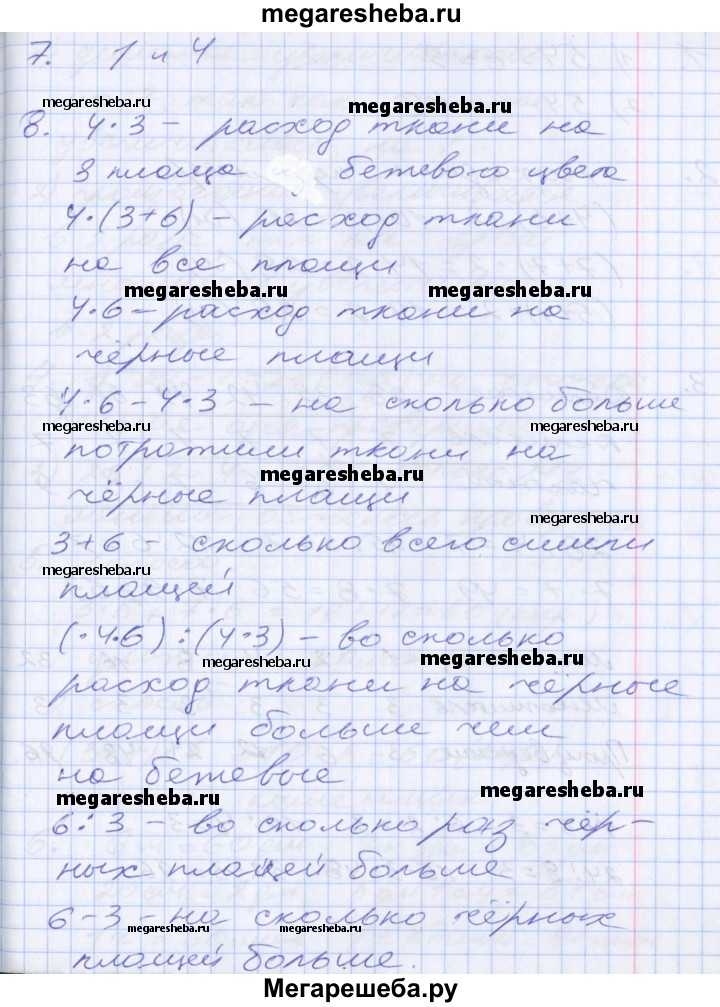 megaresheba.ru
7. 1 и 4
megaresheba.ru megaresheba.ru
8. 4·3 – расход ткани на
3 плаща бежевого цвета
4·(3+6) – расход ткани
на все плащи
megaresheba.ru megaresheba.ru
4·6 – расход ткани на
чёрные плащи
4·6 – 4·3 – на сколько больше
megaresheba.ru megaresheba.ru
потратили ткани на
megaresheba.ru
чёрные плащи
megaresheba.ru
3+6 – сколько всего сшили
megaresheba.ru
плащей
(·4·6) : (4·3) – во сколько
megaresheba.ru megaresheba.ru
расход ткани на чёрные
плащи больше чем
на бежевые
megaresheba.ru megaresheba.ru
6 : 3 – во сколько раз чёр-
ных плащей больше
6 – 3 – на сколько чёрных
megaresheba.ru megaresheba.ru
плащей больше.
Мегарешеба.ру